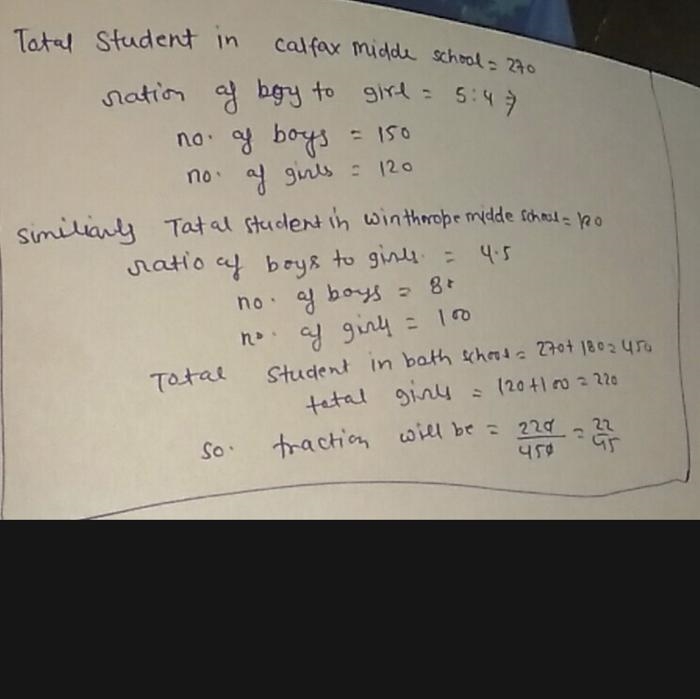 Total Student in calfax midde school = 270
ration of boy to girl = 5:4 ⇒
no. of boys = 150
no. of girls = 120
similiarly Tatal student in wintherope midde school = 180
ratio of boys to girls = 4.5
no. of boys = 80
no. of girls = 100
Total student in bath school = 270 + 180 = 450
total girls = 120 + 100 = 220
so. fraction will be = 220/450 = 22/45